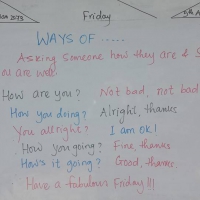 Friday
WAYS OF .....
Asking someone how they are &
you are well.
How are you? Not bad, not bad
How you doing? Alright, thanks
You allright? I am OK!
How you going? Fine, thanks
How's it going? Good, thanks.
Have a fabulous Friday!!!